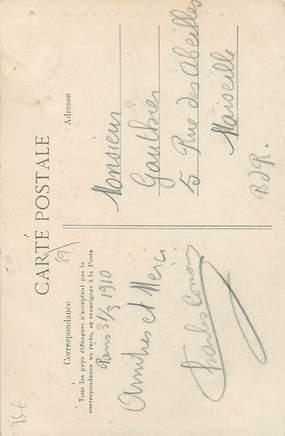 CARTE POSTALE
Correspondance
Tous les pays étrangers n'acceptent pas la
correspondance au recto, se renseigner à la Poste
Adresse
Paris 31/3 1910
Amitiés et Merci
Charles
Monsieur
Gauthier
5 Rue des Abeilles
Marseille
B.d.R.